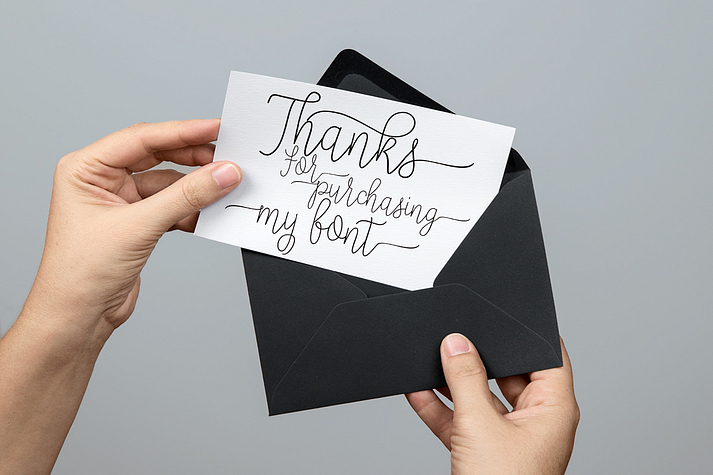 Thanks
for
purchasing
my font